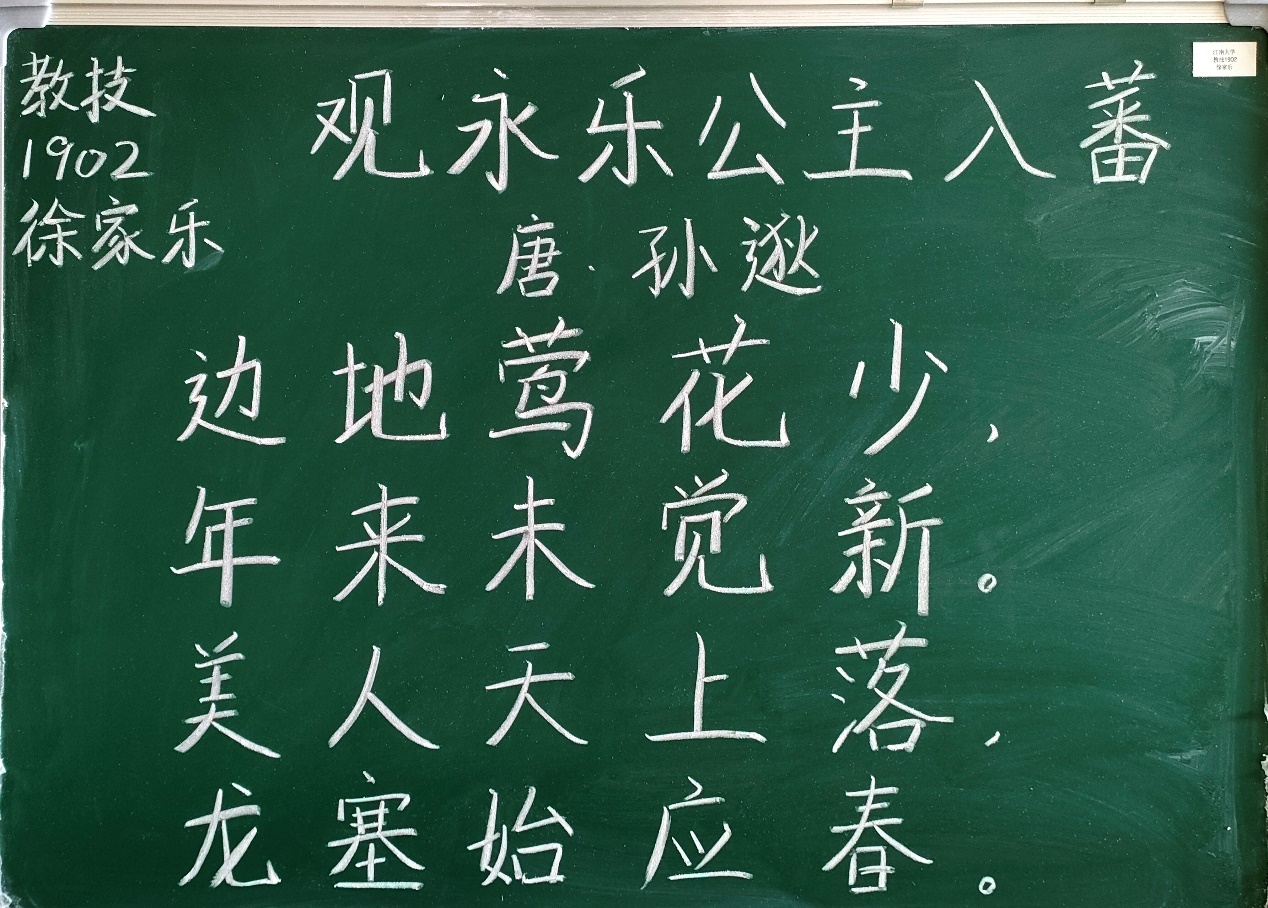 教技
1902
徐家乐
江南大学
教技1902
徐家乐
观永乐公主入蕃
唐·孙逖
边地莺花少，
年来未觉新。
美人天上落，
龙塞始应春。